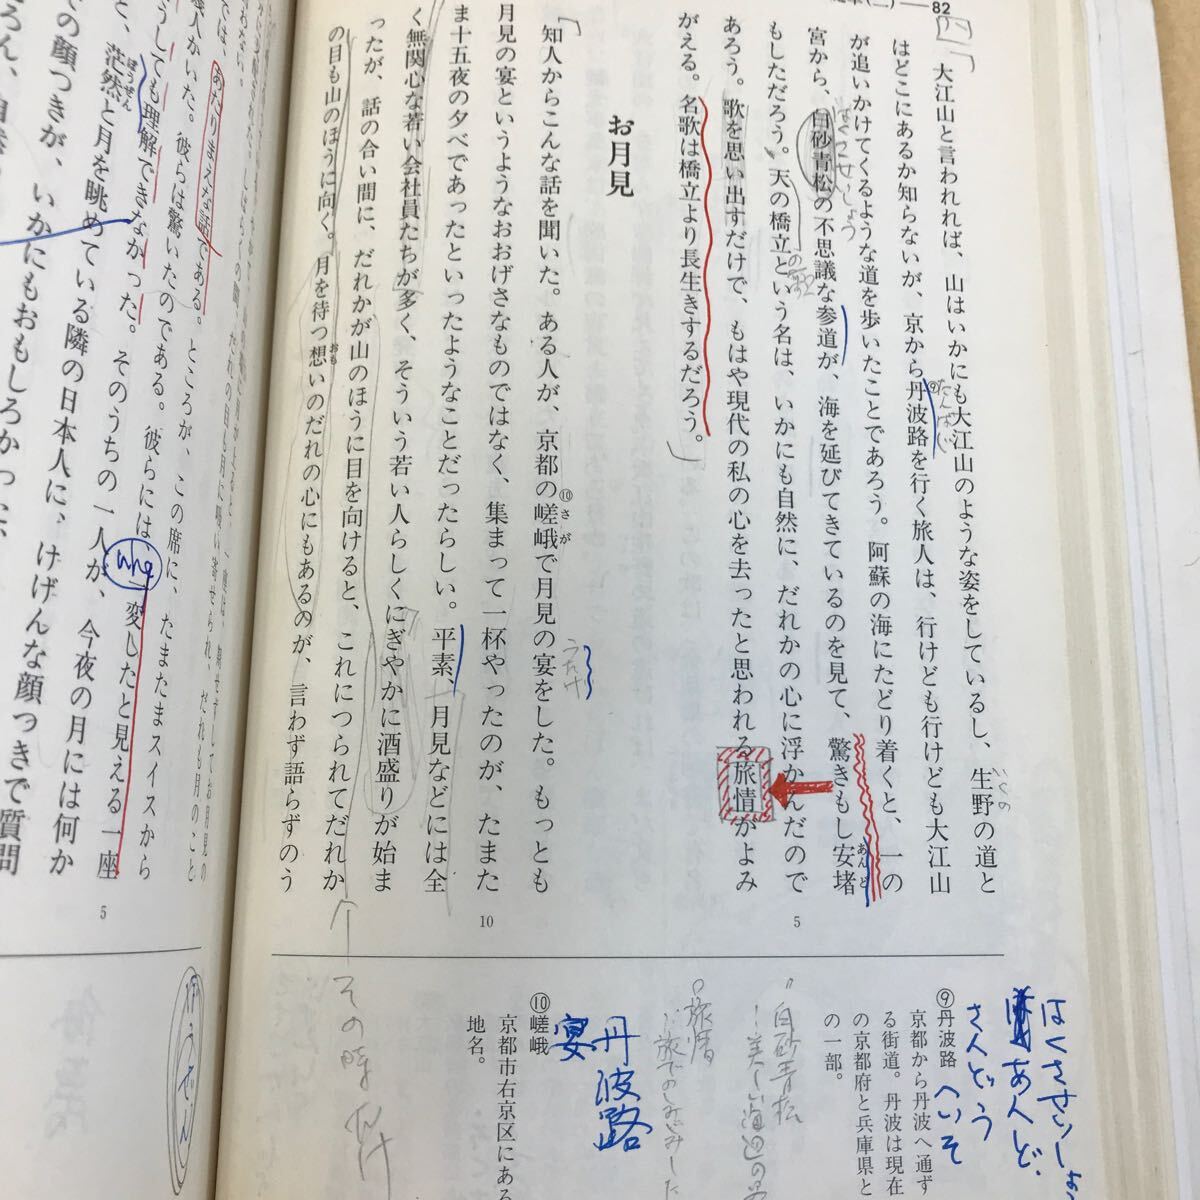 82
大江山と言われれば、山はいかにも大江山のような姿をしているし、生野の道と
いくの
はどこにあるか知らないが、京から丹波路を行く旅人は、行けども行けども大江山
⑨
たんばじ
が追いかけてくるような道を歩いたことであろう。阿蘇の海にたどり着くと、一の
宮から、白砂青松の不思議な参道が、海を延びてきているのを見て、驚きもし安堵
はくさせいしょう
あんど
もしただろう。天の橋立という名は、いかにも自然に、だれかの心に浮かんだので
あろう。歌を思い出すだけで、もはや現代の私の心を去ったと思われる旅情がよみ
がえる。名歌は橋立より長生きするだろう。
5
お月見
知人からこんな話を聞いた。ある人が、京都の嵯峨で月見の宴をした。もっとも
⑩
さが
うたげ
月見の宴というようなおおげさなものではなく、集まって一杯やったのが、たまた
10
ま十五夜の夕べであったといったようなことだったらしい。平素、月見などには全
く無関心な若い会社員たちが多く、そういう若い人らしくにぎやかに酒盛りが始ま
ったが、話の合い間に、だれかが山のほうに目を向けると、これにつられてだれか
の目も山のほうに向く。月を待つ想いのだれの心にもあるのが、言わず語らずのう
おも
⑨丹波路
京都から丹波へ通ず
る街道。丹波は現在
の京都府と兵庫県と
の一部。
⑩嵯峨
京都市右京区にある
地名。
あんど
さんどう
へいそ
丹波路
宴
白砂青松
その時
あたりまえな話である。ところが、この席に、たまたまスイスから
幾人かいた。彼らは驚いたのである。彼らには一変したと見える一座
うしても理解できなかった。そのうちの一人が、今夜の月には何か
と、茫然と月を眺めている隣の日本人に、けげんな顔つきで質問
ぼうぜん
の顔つきが、いかにもおもしろかった
5
ぼうぜん